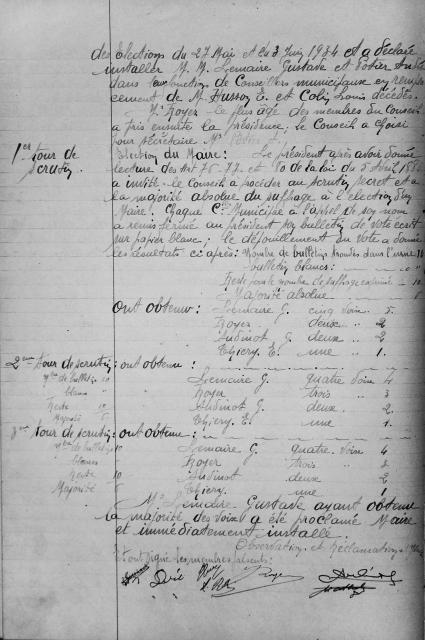 des Elections du 27 Mai et du 3 Juin 1934 et a déclaré
installer M. M. Lemaire Gustave et Potier
dans leur fonction de Conseillers municipaux en rempla
cement de M. Husson E. et Colin Louis décédés.
Mr Royer le plus âgé des membres du Conseil
a pris ensuite la Présidence, le Conseil a choisi
pour secrétaire Mr
1er tour de
scrutin
Election du Maire: Le président après avoir donné
lecture des Art 76. 77. et 80 de la loi du 5 Avril 1884
a invité le Conseil à procéder au scrutin secret et à
la majorité absolue du suffrage à l'élection d'un
Maire. Chaque Cer Municipal à l'appel de son nom
a remis fermé au président son bulletin de vote écrit
sur papier blanc; le dépouillement du vote a donné
les résultats ci après: Nombre de bulletins trouvés dans l'urne 10
bulletins blancs:
Reste pour le nombre de suffrage exprimé 10
Majorité absolue
Ont obtenu: Lemaire G. cinq voix 5
Royer deux 2
Aubinot G. deux 2
Thiery. E. une 1.
2eme tour de scrutin: ont obtenu:
Nbre de bulletins 10
blancs
Reste 10
Majorité 6
Lemaire G. quatre voix 4
Royer trois 3
Aubinot G. deux 2
Thiery E. une 1
3eme tour de scrutin: ont obtenu:
Nbre de bulletins 10
blancs
Reste 10
Majorité
Lemaire G. quatre voix 4
Royer trois 3
Aubinot deux 2
Thiery. une 1
Mr Lemaire Gustave ayant obtenu
la majorité des voix a été proclamé Maire
et immédiatement installé.
Observation et Réclamations
et ont signé les membres présents:
Royer